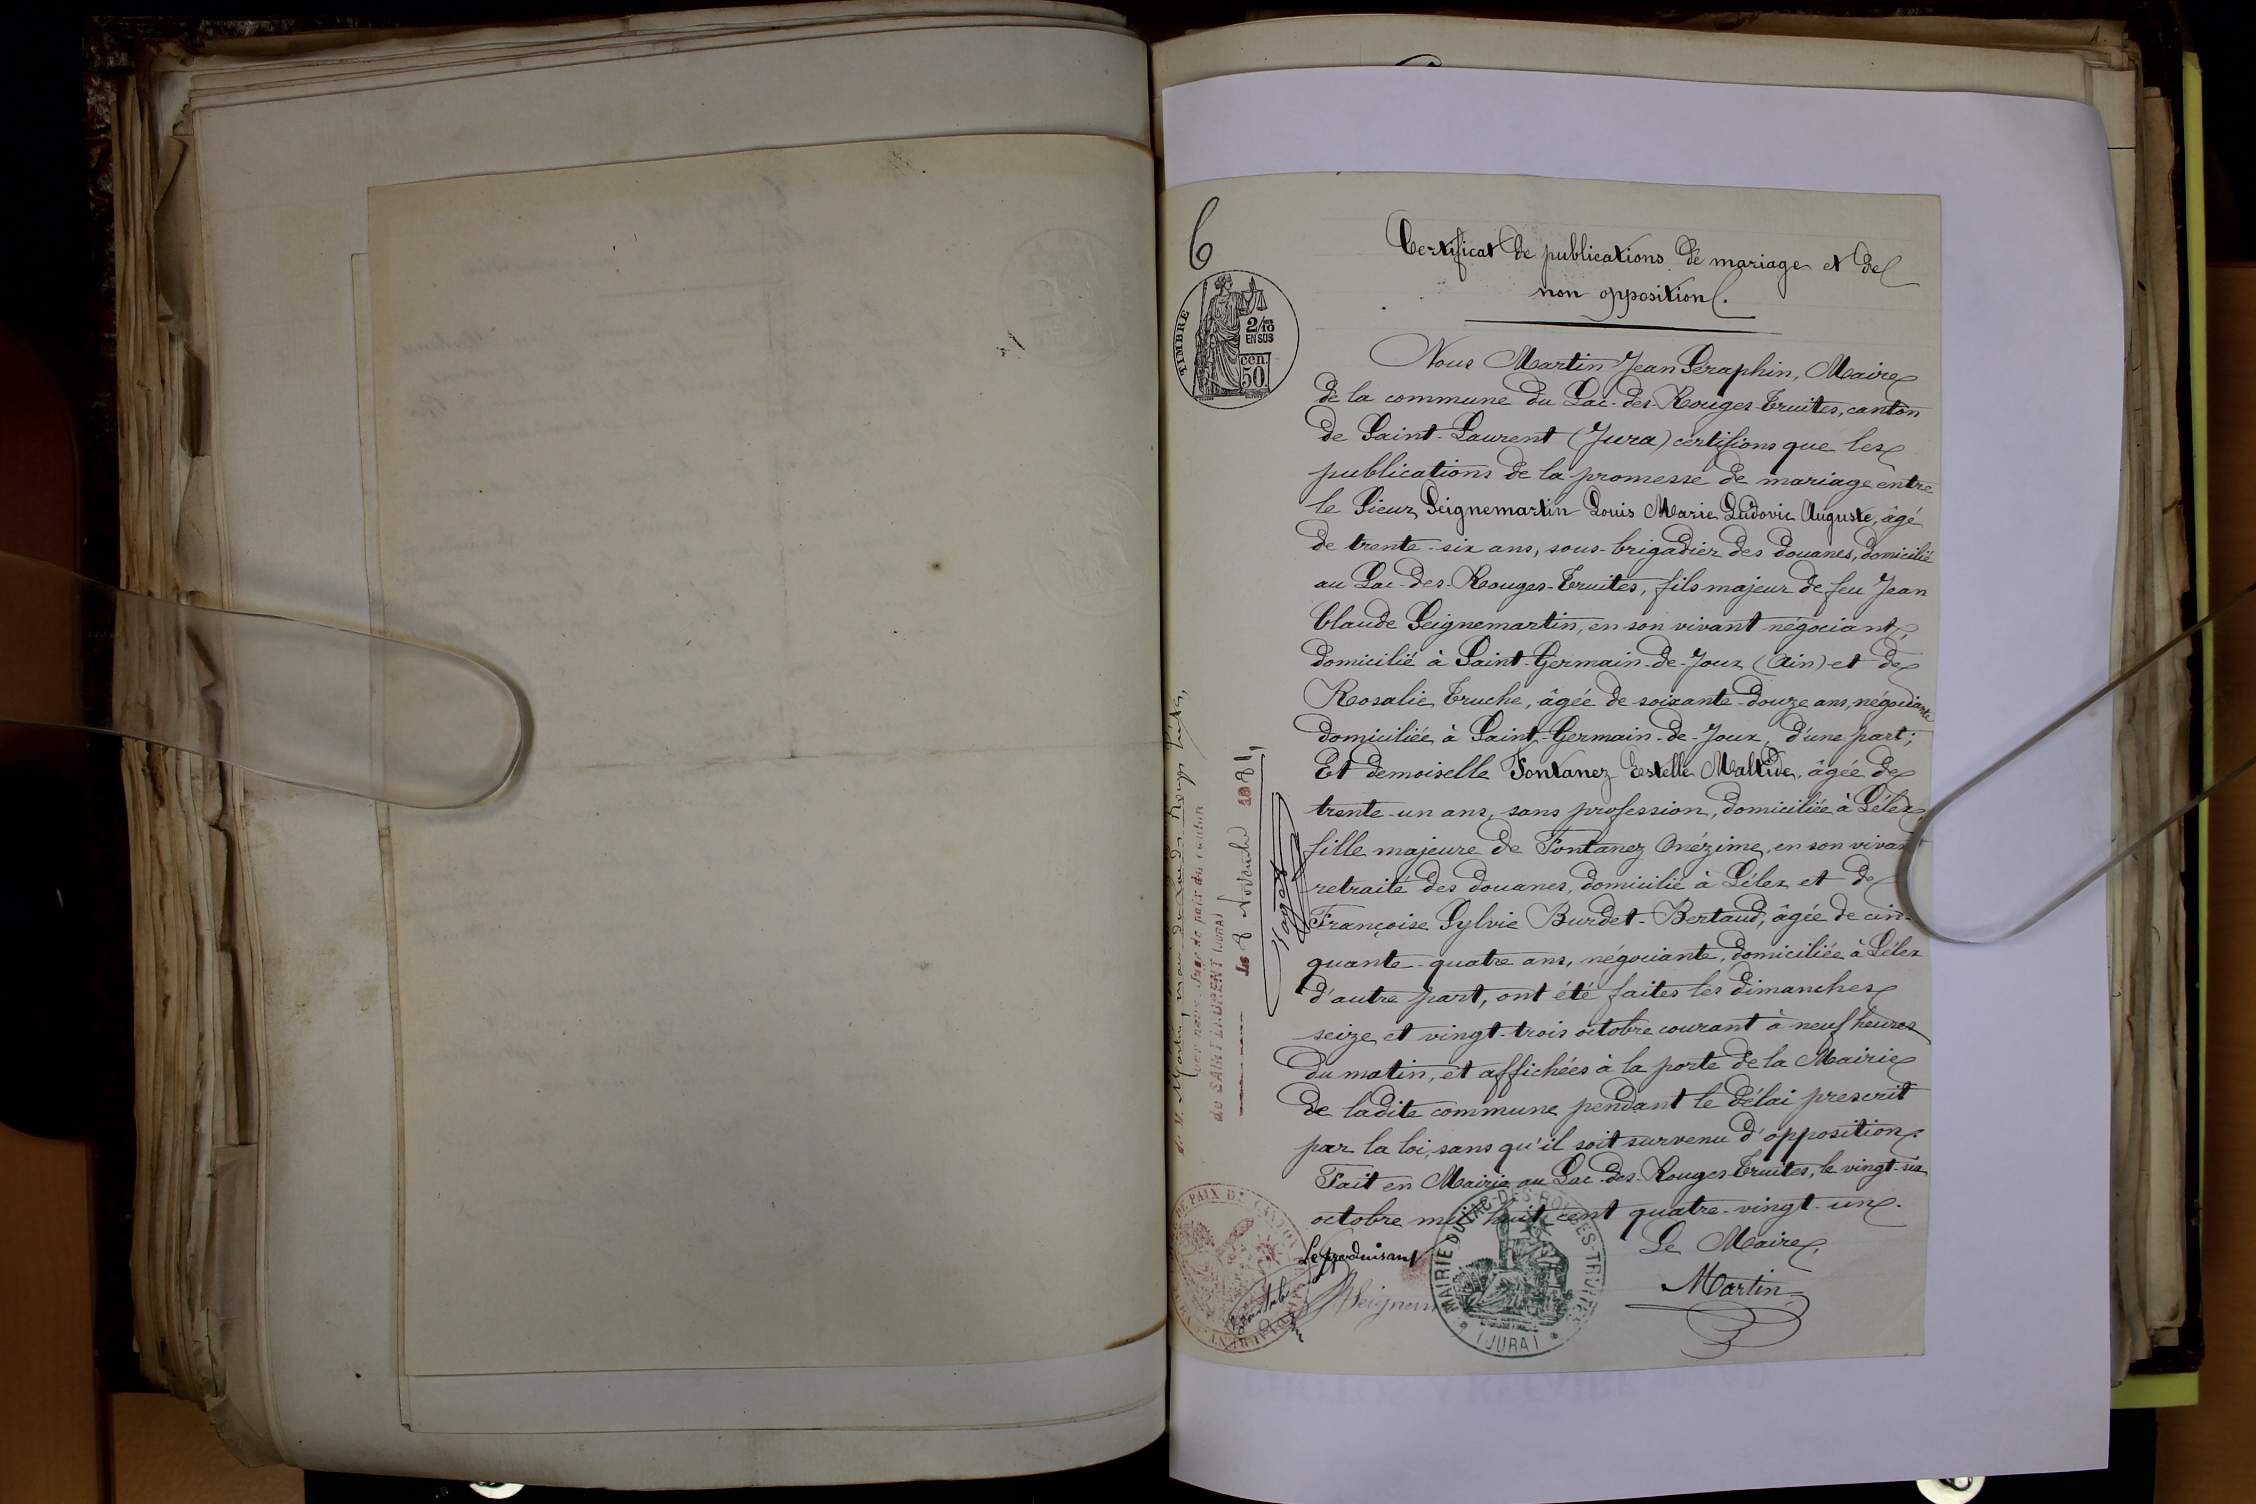 6
TIMBRE
2/10
EN SUS
cen.
50
Certificat de publications de mariage et de
non opposition.
Nous Martin Jean Séraphin, Maire
de la commune du Lac-des-Rouges-Truites, canton
de Saint-Laurent (Jura) certifions que les
publications de la promesse de mariage entre
le Sieur Seignemartin Louis Marie Ludovic Auguste, âgé
de trente-six ans, sous-brigadier des douanes, domicilié
au Lac-des-Rouges-Truites, fils majeur de feu Jean
Claude Seignemartin, en son vivant négociant,
domicilié à Saint-Germain-de-Joux (Ain) et de
Rosalie Truche, âgée de soixante-douze ans, négociante
domiciliée à Saint-Germain-de-Joux, d'une part;
Et demoiselle Fontanez Estelle Maltide, âgée de
trente-un ans, sans profession, domiciliée à Lélex,
fille majeure de Fontanez Onézime, en son vivant
retraité des douanes, domicilié à Lélex et de
Françoise Sylvie Burdet-Bertaud, âgée de cin-
quante-quatre ans, négociante, domiciliée à Lélex
d'autre part, ont été faites les dimanches
seize et vingt-trois octobre courant à neuf heures
du matin, et affichées à la porte de la Mairie
de ladite commune pendant le délai prescrit
par la loi, sans qu'il soit survenu d'opposition.
Fait en Mairie au Lac-des-Rouges-Truites, le vingt-six
octobre mil huit cent quatre-vingt-un.
Le produisant
Le Maire,
Martin
MAIRIE DU LAC-DES-ROUGES-TRUITES
(JURA)
Martin, maire
par nous, Juge de paix du canton
de SAINT LAURENT (JURA)
Le 8 Novembre 1881,
DE PAIX DU CANTON